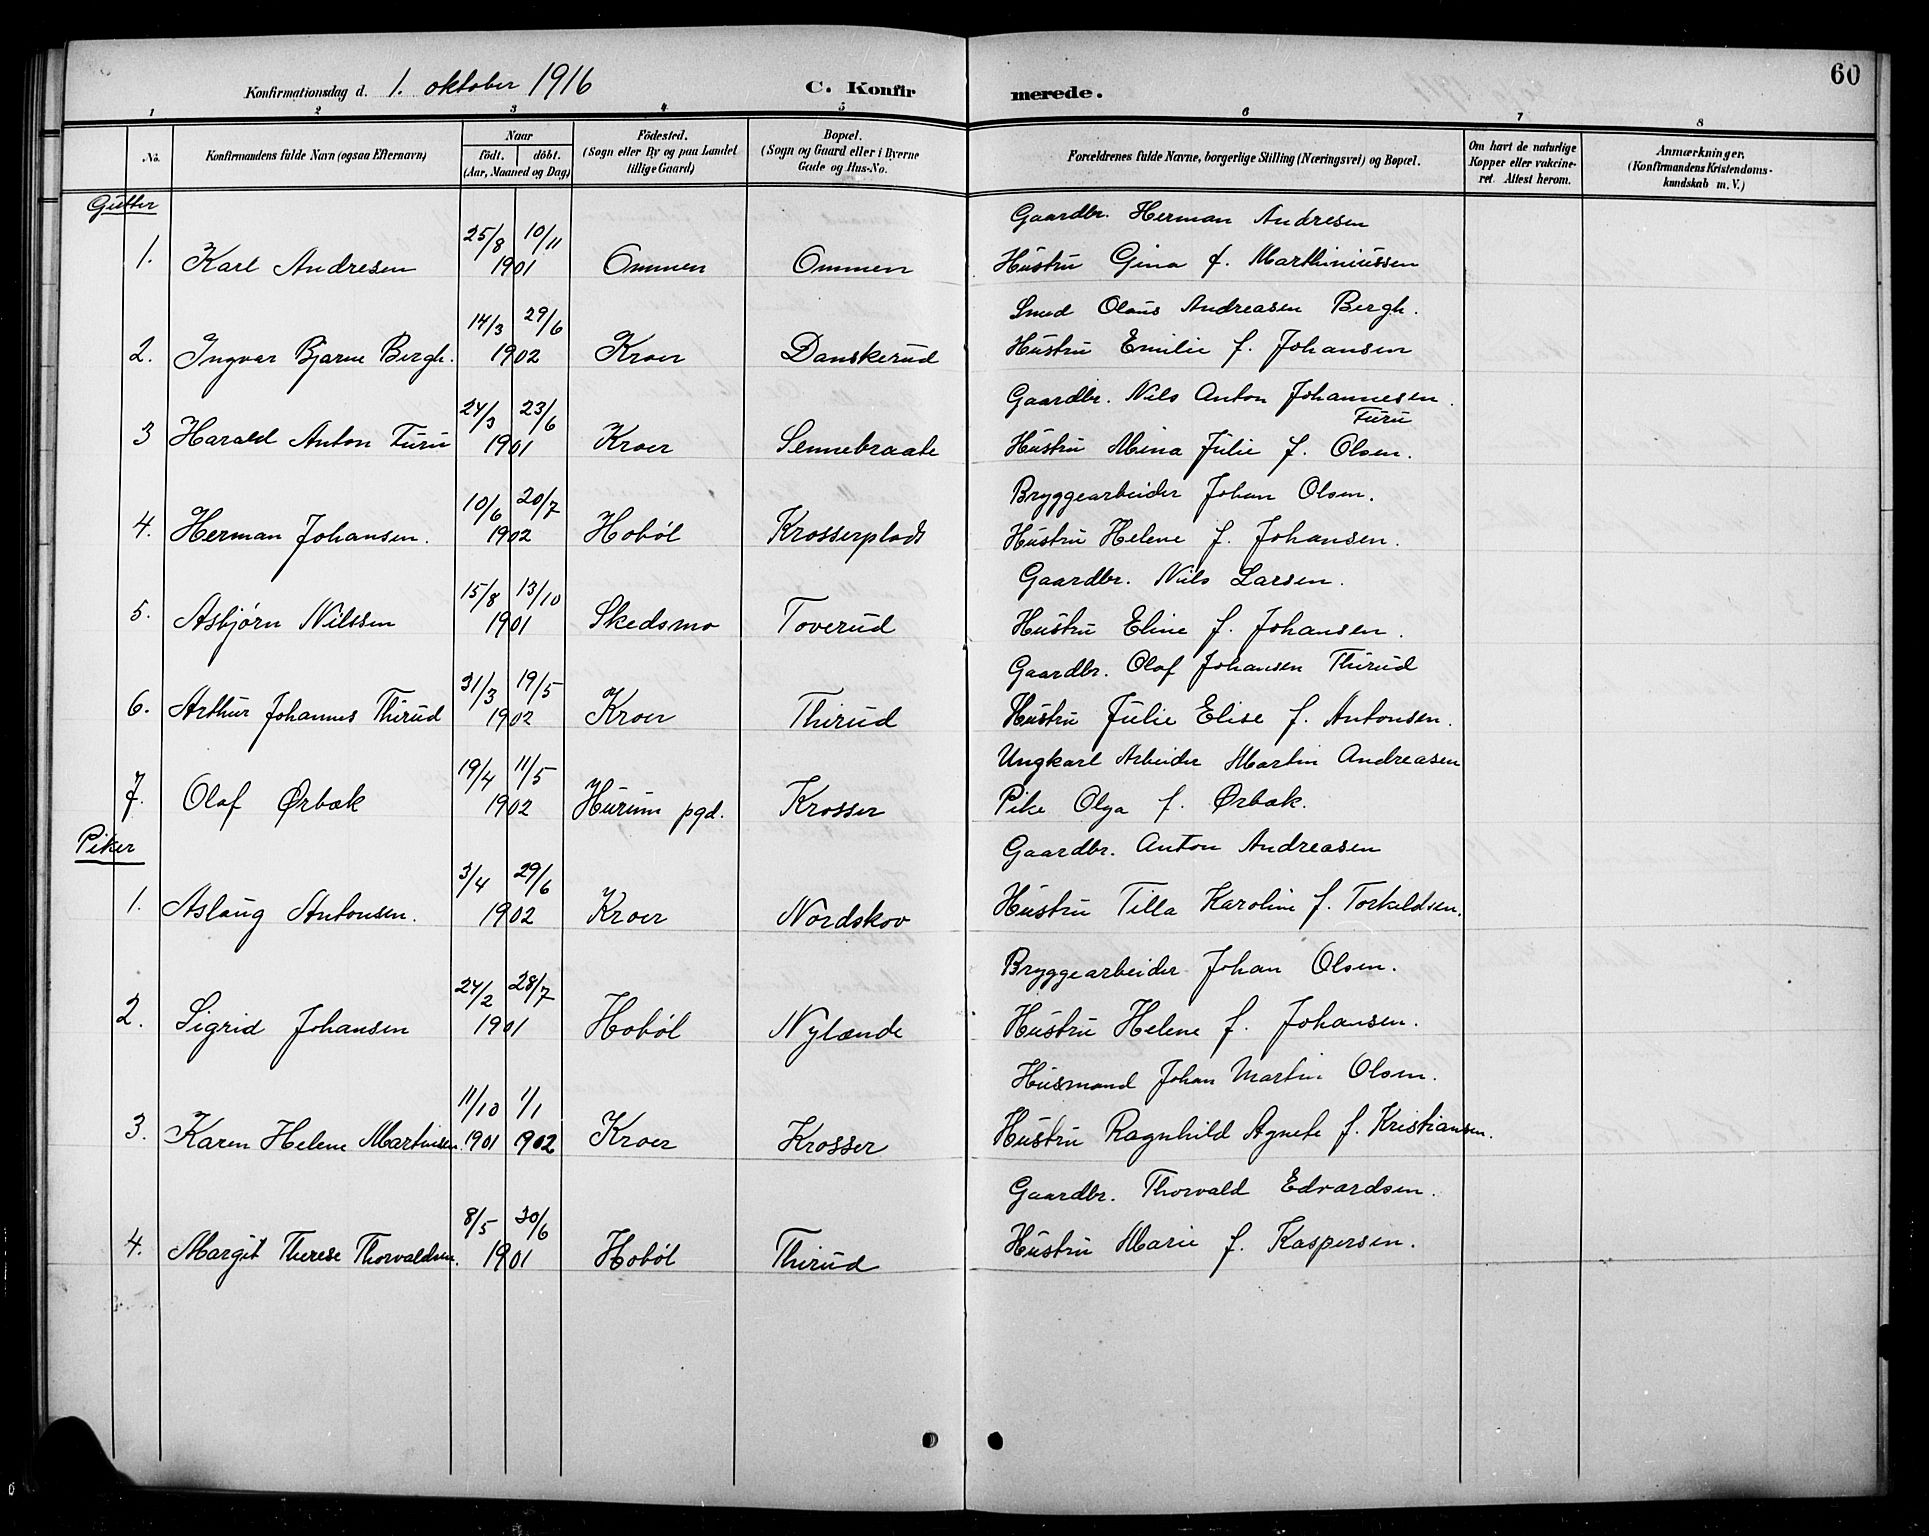 60
Konfirmationsdag d. 1. oktober 1916 C. Konfirmerede.
1 2 3 4 5 6 7 8
No. Konfirmandens fulde Navn (ogsaa Efternavn) Naar født. døbt. (Aar, Maaned og Dag) Fødested. (Sogn eller By og paa Landet tillige Gaard) Bopæl. (Sogn og Gaard eller i Byerne Gade og Hus-No. Forældrenes fulde Navne, borgerlige Stilling (Næringsvei) og Bopæl. Om havt de naturlige Kopper eller vakcineret. Attest herom. Anmærkninger. (Konfirmandens Kristendomskundskab m. V.)
Gutter
25/8 10/11 Gaardbr. Herman Andresen
1. Karl Andresen 1901 Ommen Ommen Hustru Gina f. Marthiniussen
14/3 29/6 Smed Olaus Andreasen Bergh.
2. Ingvar Bjarne Bergh. 1902 Kroer Danskerud Hustru Emilie f. Johansen
24/3 23/6 Gaardbr. Nils Anton Johannesen
Furu
3 Harald Anton Furu 1901 Kroer Sennebraate Hustru Mina Julie f. Olsen.
10/6 20/7 Bryggearbeider Johan Olsen.
4. Herman Johansen. 1902 Hobøl Krosserplads Hustru Helene f. Johansen.
15/8 13/10 Gaardbr. Nils Larsen.
5. Asbjørn Nilssen 1901 Skedsmo Toverud Hustru Eline f. Johansen.
31/3 19/5 Gaardbr. Olaf Johansen Thirud
6. Arthur Johannes Thirud 1902 Kroer Thirud Hustru Julie Elise f. Antonsen.
19/4 11/5 Ungkarl Arbeider Martin Andreasen
7. Olaf Ørbæk 1902 Hurum pgd. Krosser Pike Olga f. Ørbæk.
Piker
3/4 29/6 Gaardbr. Anton Andreasen
1. Aslaug Antonsen. 1902 Kroer Nordskov Hustru Tilla Karoline f. Torkeldsen.
24/2 28/7 Bryggearbeider Johan Olsen.
2. Sigrid Johansen 1901 Hobøl Nylænde Hustru Helene f. Johansen.
11/10 1/1 Husmand Johan Martin Olsen.
3. Karen Helene Martinsen. 1901 1902 Kroer Krosser Hustru Ragnhild Agnete f. Kristiansen.
8/5 30/6 Gaardbr. Thorvald Edvardsen.
4. Margit Therese Thorvaldsen. 1901 Hobøl Thirud Hustru Marie f. Kaspersen.